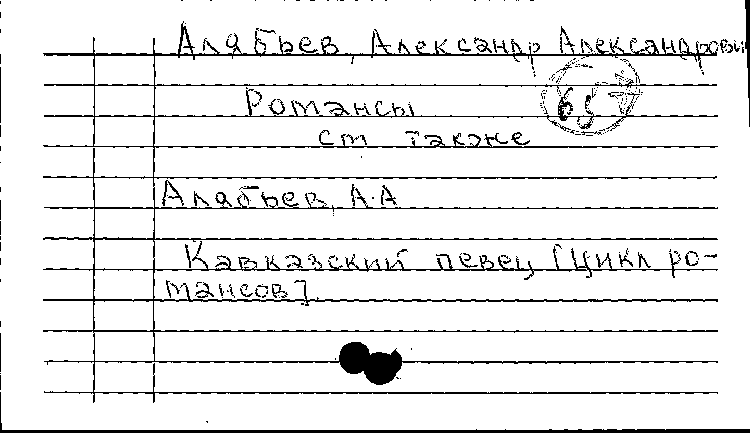 Алябьев, Александр Александрови
65
Романсы
см также
Алябьев, А.А
Кавказский певец [Цикл ро-
мансов].